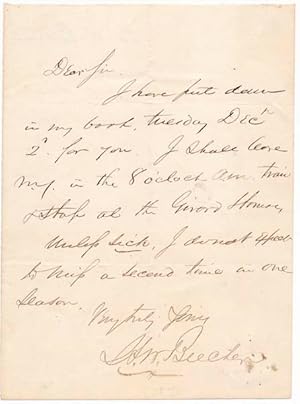 Dear Sir.
I have put down
in my book, Tuesday Decr
2d for you. I shall leave
N.Y. in the 8 o'clock Am. train
& stop at the Girard House,
Unless sick, I do not expect
to miss a second time in one
season.
Very truly yours
H. W. Beecher